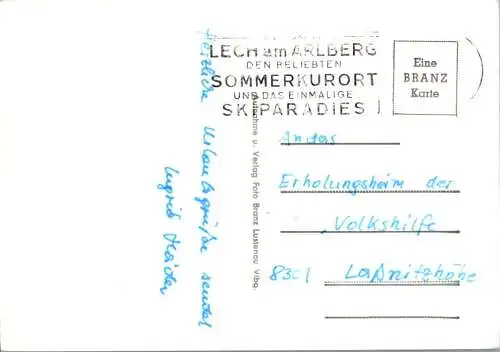 Herzliche Urlaubsgrüße sendet
Ingrid Haider
LECH am ARLBERG
DEN BELIEBTEN
SOMMERKURORT
UND DAS EINMALIGE
SKIPARADIES !
Eine
BRANZ
Karte
Aufnahme u. Verlag Foto Branz Lustenau Vlbg.
An das
Erholungsheim der
Volkshilfe
8301 Laßnitzhöhe